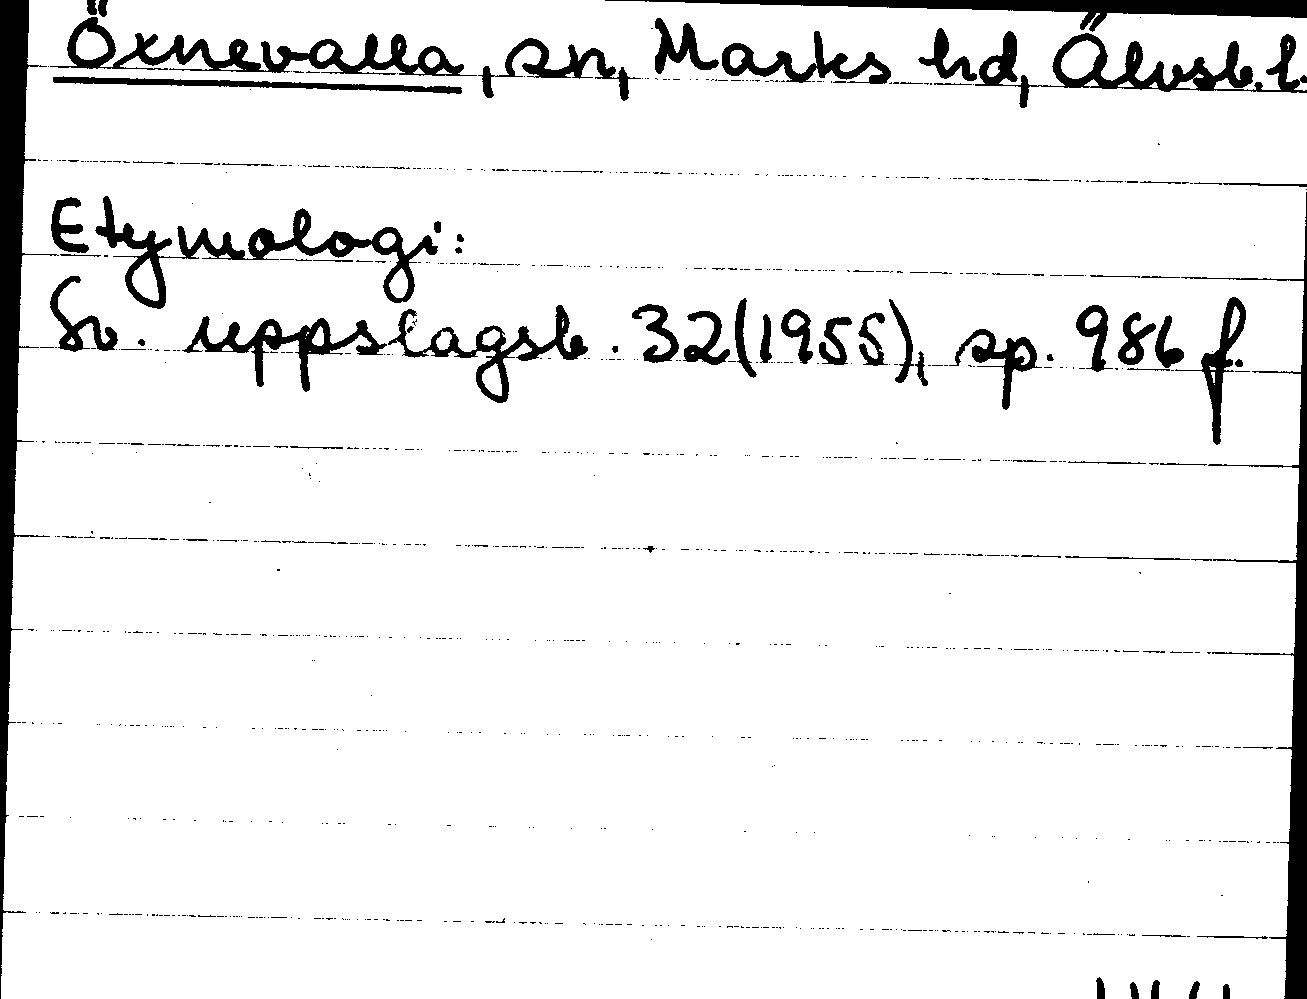 Öxnevalla, sn, Marks hd, Älvsb. l.
Etymologi:
Sv. uppslagsb. 32(1955), sp. 986 f.